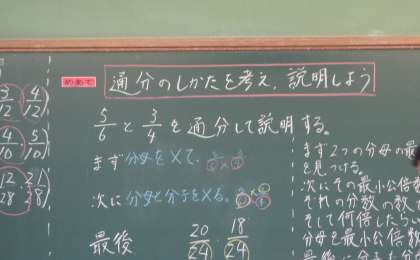 3/12 4/12)
4/10 5/10)
12/28 21/28)
めあて 通分のしかたを考え、説明しよう
5/6と3/4を通分して説明する。
まず分母を×て、6×4
次に分母と分子を×る。
最後 20/24 18/24
まず2つの分母の最
を見つける。
次にその最小公倍
それぞれの分数の
そして何倍したら
分母を最小公倍数